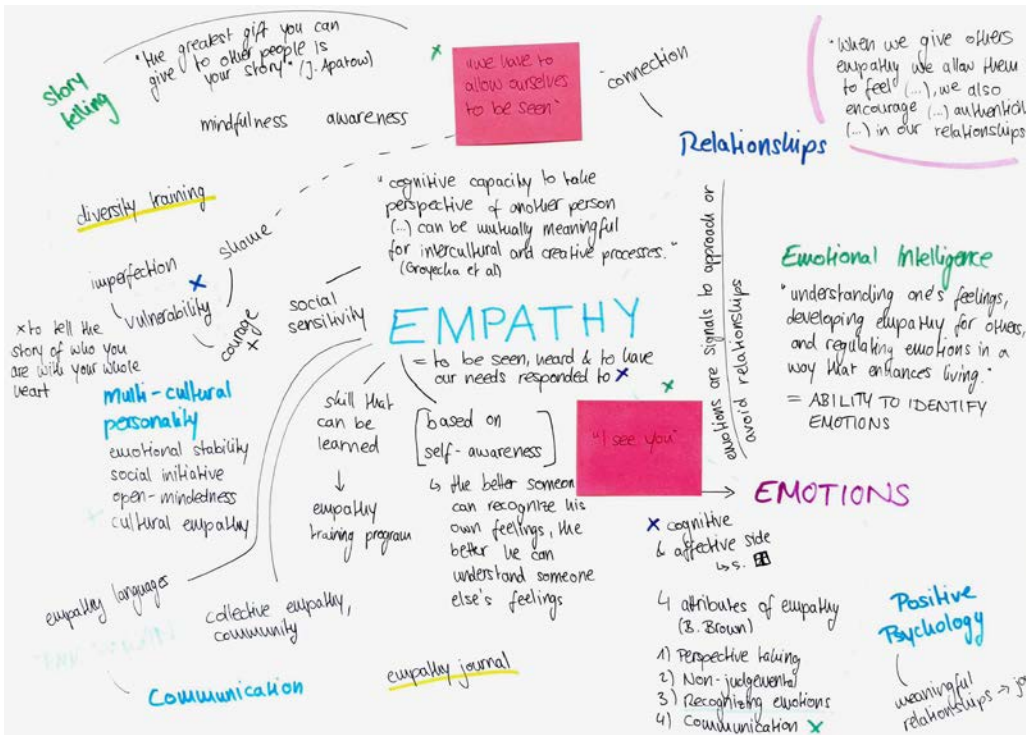 story
telling
"the greatest gift you can
give to other people is
your story" (J. Apatow)
mindfulness awareness
"we have to
allow ourselves
to be seen"
connection
Relationships
"When we give others
empathy we allow them
to feel (...), we also
encourage (...) authentici
(...) in our relationships
diversity training
shame
imperfection
vulnerability
courage
x to tell the
story of who you
are with your whole
heart
"cognitive capacity to take
perspective of another person
(...) can be mutually meaningful
for intercultural and creative processes."
social
sensitivity
EMPATHY
= to be seen, heard & to have
our needs responded to x
emotions are signals to approach or
avoid relationships
Emotional Intelligence
"understanding one's feelings,
developing empathy for others,
and regulating emotions in a
way that enhances living."
= ABILITY TO IDENTIFY
EMOTIONS
multi-cultural
personality
emotional stability
social initiative
open-mindedness
cultural empathy
skill that
can be
learned
↓
empathy
training program
based on
self-awareness
↳ the better someone
can recognize his
own feelings, the
better he can
understand someone
else's feelings
"I see you"
→ EMOTIONS
x cognitive
& affective side
↳ s.
4 attributes of empathy
(B. Brown)
1) Perspective taking
2) Non-judgemental
3) Recognizing emotions
4) Communication x
Positive
Psychology
meaningful
relationships → jo
empathy languages
collective empathy,
community
Communication
empathy journal